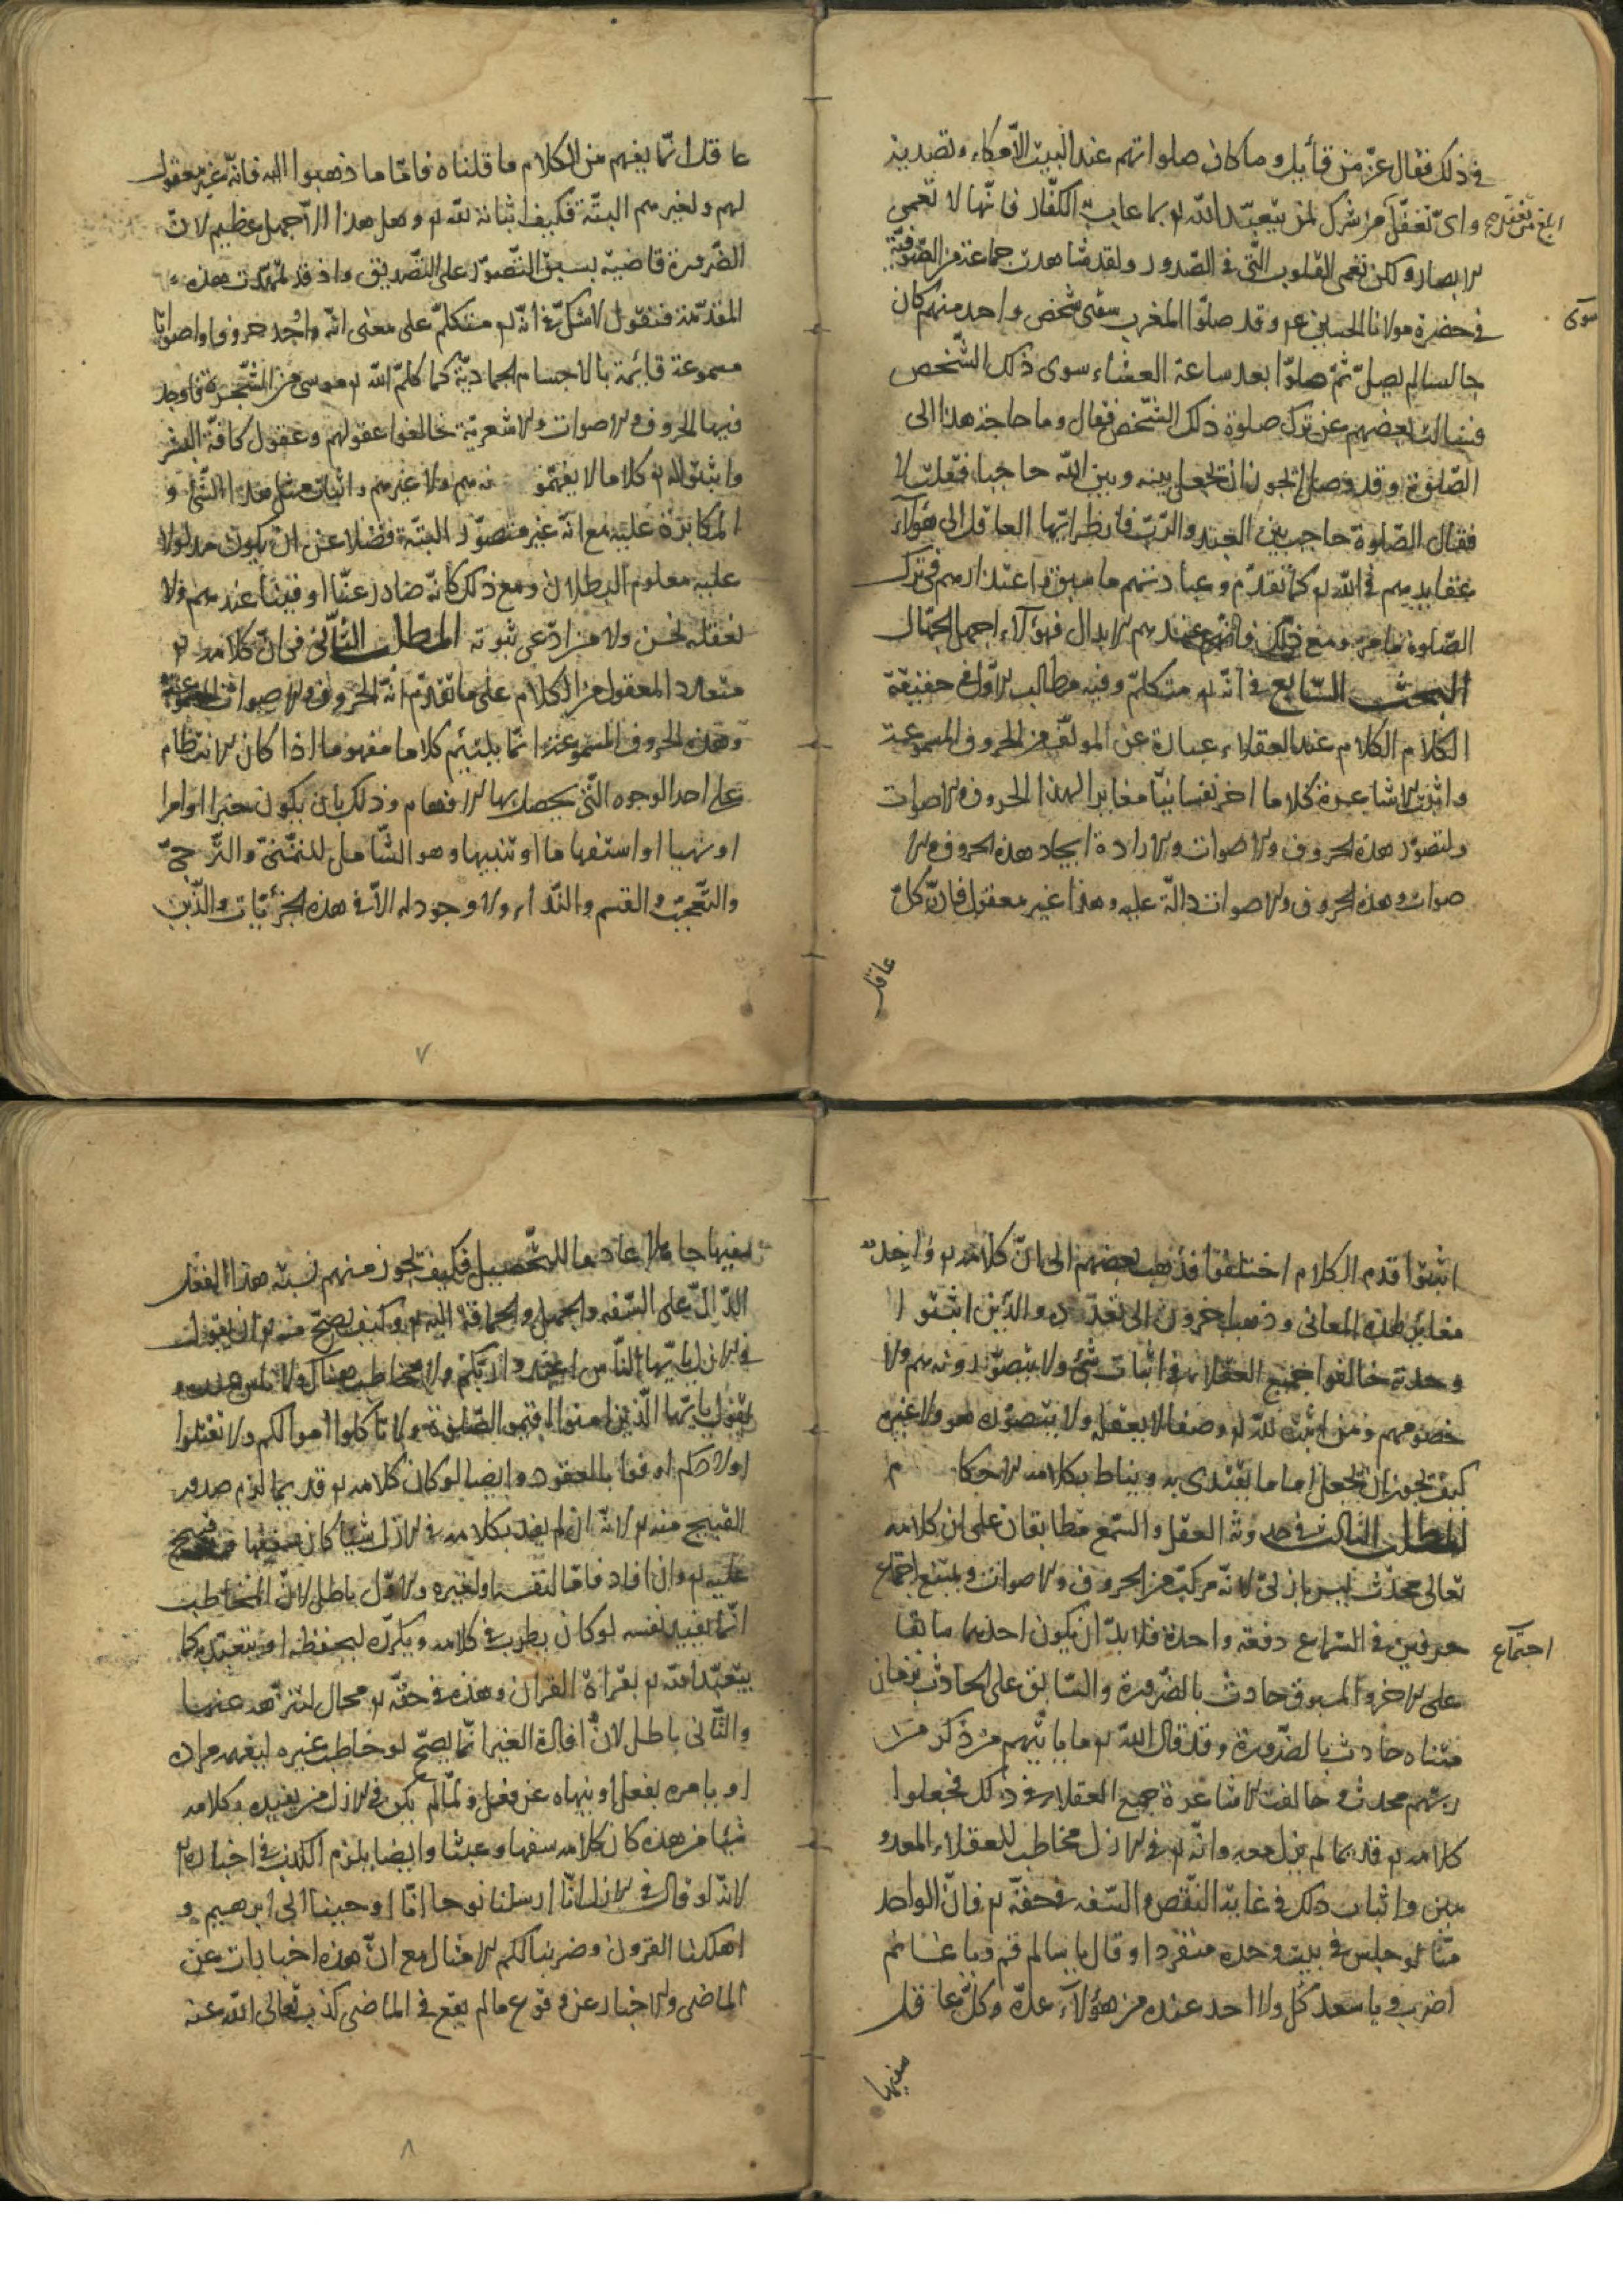 في ذلك فقال عزّ من قائل وما كان صلواتهم عند البيت الّا مكاء وتصدية
وايّ تغفّل ابلغ من تغفّل من يتبرك لمن يتعبد الله لم بما عاب به الكفّار فانّها لا تعمى
الابصار ولكن تعمى القلوب التّي في الصّدور ولقد شاهدت جماعة من الصّوفيّة
في حضرة مولانا الحسين عم وقد صلّوا المغرب سوى شخص واحد منهم كان
سوى
جالسا لم يصلّ ثمّ صلّوا بعد ساعة العشاء سوى ذلك الشّخص
فسالت بعضهم عن ترك صلوة ذلك الشّخص فقال وما حاجة هذا الى
الصّلوة وقد وصل ايجوز ان يجعل بينه وبين الله حاجبا فقلت لا
فقال الصّلوة حاجب بين العبد والرّبّ فانظر ايّها العاقل الى هؤلآء
عقايدهم في الله لم كما تقدّم وعبادتهم ما سبق واعتذارهم في ترك
الصّلوة ما مرّ ومع ذلك فانّهم عندهم الابدال فهؤلآء اجهل الجهّال
البحث السّابع في انّه لم متكلّم وفيه مطالب الاوّل في حقيقة
الكلام الكلام عند العقلاء عبارة عن المولّف من الحروف المسموعة
واثبت الاشاعرة كلاما اخر نفسانيّا مغايرا لهذا الحروف والاصوات
ولتصوّر هذه الحروف والاصوات ولارادة ايجاد هذه الحروف والا
صوات وهذه الحروف والاصوات دالّة عليه وهذا غير معقول فانّ كلّ
عاقل
عاقل انّما يفهم من الكلام ما قلناه فامّا ما ذهبوا اليه فانّه غير معقول
لهم ولغيرهم البتّة فكيف اثباته للّه لم وهل هذا الّا جهل عظيم لانّ
الضّرورة قاضية بسبق التّصوّر على التّصديق واذ قد تمهّدت هذه
المقدّمة فنقول لا شكّ في انّه لم متكلّم على معنى انّه واجد حروفا واصواتا
مسموعة قائمة بالاجسام الجماديّة كما كلّم الله لم موسى من الشّجرة فاوجد
فيها الحروف والاصوات والاشعريّة خالفوا عقولهم وعقول كافّة البشر
واثبتوا له لم كلاما لا يفهمونه هم ولا غيرهم واثبات مثل هذا الشّئ و
المكابرة عليه مع انّه غير متصوّر البتّة فضلا عن ان يكون مدلولا
عليه معلوم البطلان ومع ذلك كانّه صادر عنّا او فينا عندهم ولا
نعقله نحن ولا من ادّعى ثبوته المطلب الثّاني في انّ كلامه لم
متعدد المعقول من الكلام على ما تقدّم انّه الحروف والاصوات المسموعة
وهذه الحروف المسموعة انّما يلتئم كلاما مفهوما اذا كان الانتظام
على احد الوجوه التّي يحصل بها الافهام وذلك بان يكون خبرا او امرا
او نهيا او استفهاما او تنبيها وهو الشّامل للتمنّي والتّرجّي
والتّعجّب والقسم والنّداء ولا وجود له الّا في هذه الجزئيّات والّذين
٧
اثبتوا قدم الكلام اختلفوا فذهب بعضهم الى انّ كلامه لم واحد
مغاير لهذه المعاني وذهب اخرون الى تعدّده والّذين اثبتوا
وحدته خالفوا جميع العقلاء في اثبات شئ ولا يتصوّرونه هم ولا
خصومهم ومن اثبت للّه لم وصفا لا يعقله ولا يتصوّره هو ولا غيره
كيف يجوز ان يجعل اماما يقتدى به ويناط بكلامه الاحكام
المطلب الثّالث في حدوثه العقل والسّمع متطابقان على ان كلامه
تعالى محدث ليس بازليّ لانّه مركّب من الحروف والاصوات ويمتنع اجتماع
حرفين في السّماع دفعة واحدة فلا بدّ ان يكون احدهما سابقا
اجتماع
على الاخر والمسبوق حادث بالضّرورة والسّابق على الحادث بزمان
متناه حادث بالضّرورة وقد قال الله لم ما ياتيهم من ذكر من
ربّهم محدث وخالفت الاشاعرة جميع العقلاء في ذلك فجعلوا
كلامه لم قديما لم يزل معه وانّه لم في الازل مخاطب للعقلاء المعدو
مين واثبات ذلك في غاية النّقص والسّفه في حقّه لم فانّ الواحد
منّا لو جلس في بيت وحده منفردا وقال يا سالم قم ويا غانم
اضرب ويا سعد كل ولا احد عنده من هؤلآء عدّه كلّ عاقل
سفيها
سفيها جاهلا عادما للتّحصيل فكيف يجوز منهم نسبة هذا الفعل
الدّالّ على السّفه والجهل والحماقة اليه لم وكيف يصحّ منه لم ان يقول
في الازل يا ايّها النّاس اعبدوا ربّكم ولا مخاطب هناك ولا ناس عنده و
يقول يا ايّها الّذين امنوا اقيموا الصّلوة ولا تاكلوا اموالكم ولا تقتلوا
اولادكم اوفوا بالعقود وايضا لو كان كلامه لم قديما لزم صدور
القبيح منه لم لانّه ان لم يفد بكلامه في الازل شيئا كان سفها وهو قبيح
عليه لم وان افاد فامّا لنفسه او لغيره والاوّل باطل لانّ المخاطب
انّما يفيد نفسه لو كان يطرب في كلامه او يكرّره ليحفظه او يتعبّد به كما
يتعبّد الله لم بقراءة القرآن وهذه في حقّه لم محال لتنزّهه عنها
والثّاني باطل لانّ افادة الغير انّما يصحّ لو خاطب غيره ليفهم مراده
او يامره بفعل او ينهاه عن فعل ولمّا لم يكن في الازل من يفيده بكلامه
شيئا من هذه كان كلامه سفها وعبثا وايضا يلزم الكذب في اخباره لم
لانّه لو قال في الازل انّا ارسلنا نوحا انّا اوحينا الى ابرهيم و
اهلكنا القرون وضربنا لكم الامثال مع انّ هذه اخبارات عن
الماضي والاخبار عن وقوع ما لم يقع في الماضي كذب تعالى الله عنه
٨